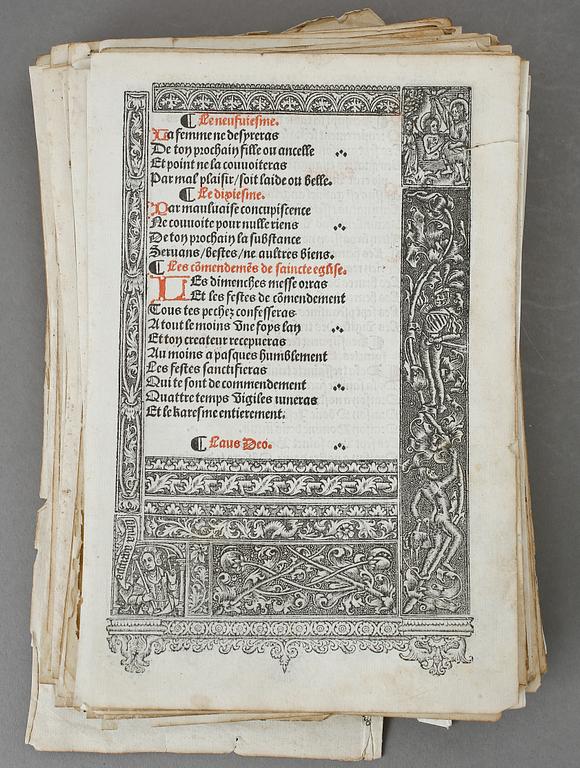 ¶ Le neufuiesme.
La femme ne desyreras
De ton prochain fille ou ancelle
Et point ne la couuoiteras
Par mal plaisir/soit laide ou belle.
¶ Le dixiesme.
Par mauluaise concupiscence
Ne couuoite pour nulle riens
De ton prochain la substance
Seruans/bestes/ne aultres biens.
¶ Les cõmendemẽs de saincte eglise.
LEs dimenches messe orras
Et les festes de cõmendement
Tous tes pechez confesseras
A tout le moins vne foys lan
Et ton createur recepueras
Au moins a pasques humblement
Les festes sanctifieras
Qui te sont de commendement
Quattre temps vigiles iuneras
Et le karesme entierement.
¶ Laus Deo.